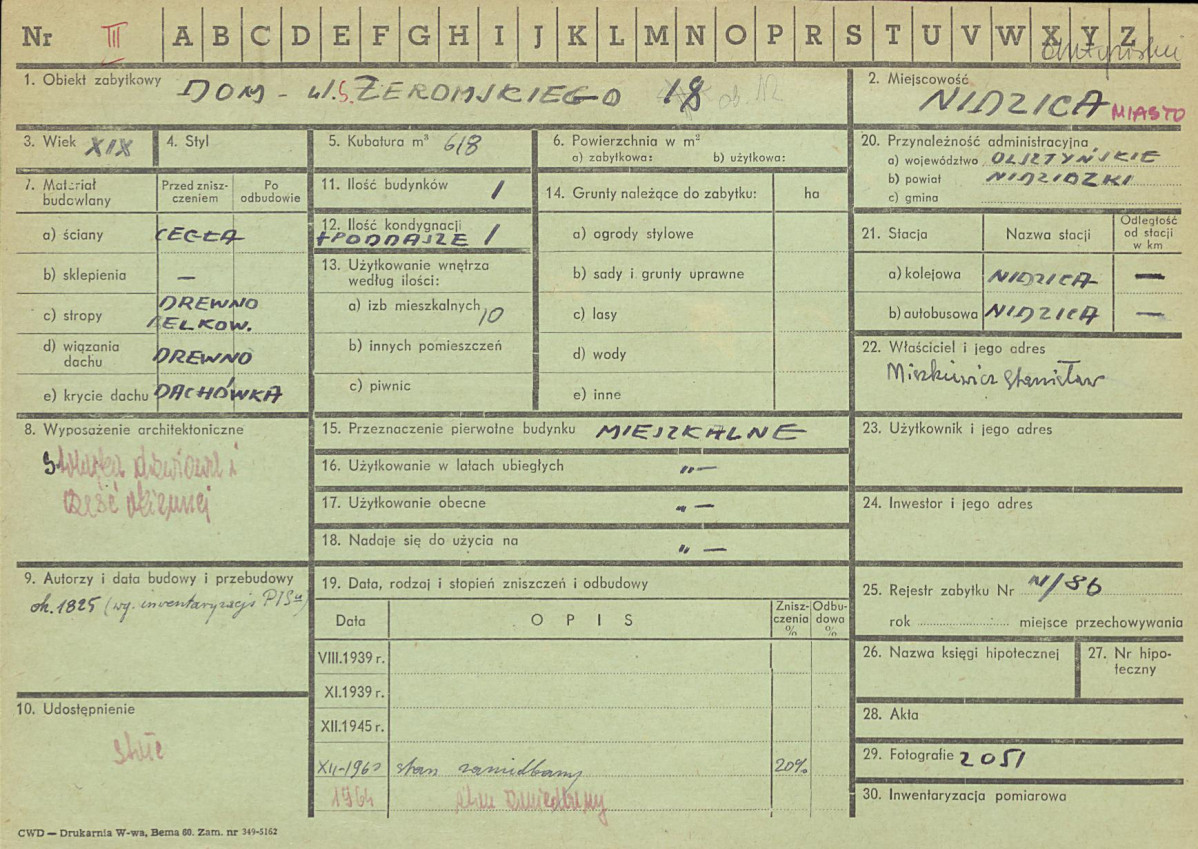 Nr III A B C D E F G H I J K L M N O P R S T U V W X Y Z
1. Obiekt zabytkowy DOM - ul. S. ŻEROMSKIEGO 18
2. Miejscowość
NIDZICA MIASTO
3. Wiek XIX
4. Styl
5. Kubatura m³ 618
6. Powierzchnia w m²
a) zabytkowa: b) użytkowa:
20. Przynależność administracyjna
a) województwo OLSZTYŃSKIE
b) powiat NIDZIDZKI
c) gmina
7. Materiał budowlany
Przed zniszczeniem
Po odbudowie
a) ściany CEGŁA
b) sklepienia —
c) stropy DREWNO
BELKOW.
d) wiązania dachu DREWNO
e) krycie dachu DACHÓWKA
11. Ilość budynków 1
12. Ilość kondygnacji
+PODDASZE 1
13. Użytkowanie wnętrza
według ilości:
a) izb mieszkalnych 10
b) innych pomieszczeń
c) piwnic
14. Grunty należące do zabytku: ha
a) ogrody stylowe
b) sady i grunty uprawne
c) lasy
d) wody
e) inne
21. Stacja Nazwa stacji Odległość od stacji w km
a) kolejowa NIDZICA —
b) autobusowa NIDZICA —
22. Właściciel i jego adres
Miszkiewicz Stanisław
8. Wyposażenie architektoniczne
Stolarka drzwiowa i
część okiennej
15. Przeznaczenie pierwotne budynku MIESZKALNE
16. Użytkowanie w latach ubiegłych „ —
17. Użytkowanie obecne „ —
18. Nadaje się do użycia na „ —
23. Użytkownik i jego adres
24. Inwestor i jego adres
9. Autorzy i data budowy i przebudowy
ok. 1825 (wg. inwentaryzacji PIS-u)
10. Udostępnienie
stałe
19. Data, rodzaj i stopień zniszczeń i odbudowy
Data OPIS Zniszczenia % Odbudowa %
VIII.1939 r.
XI.1939 r.
XII.1945 r.
stan zaniedbany 20%
1964 stan zaniedbany
25. Rejestr zabytku Nr N/86
rok miejsce przechowywania
26. Nazwa księgi hipotecznej
27. Nr hipoteczny
28. Akta
29. Fotografie 2051
30. Inwentaryzacja pomiarowa
CWD — Drukarnia W-wa, Bema 60. Zam. nr 349-5162